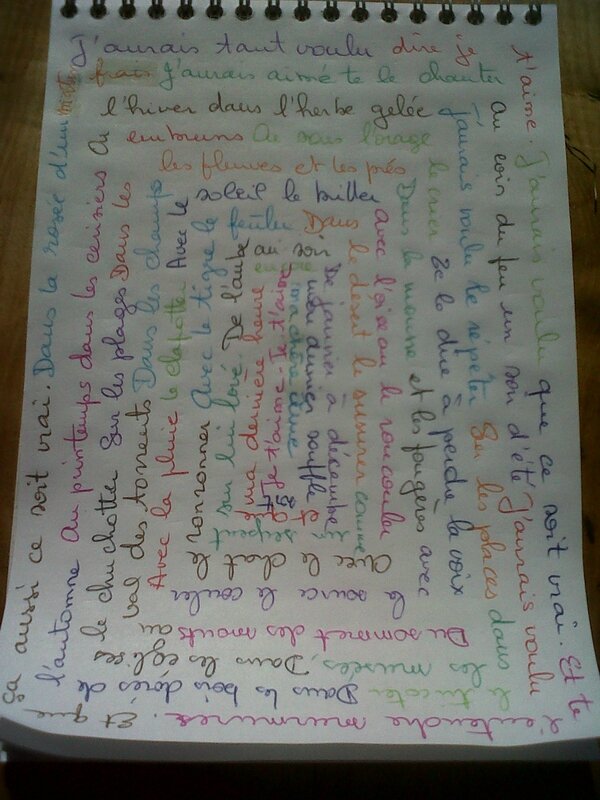 J'aurais tant voulu dire je
t'aime. J'aurais voulu que ce soit vrai. Et te
l'entendre murmurer. Et que
ça aussi ce soit vrai. Dans la rosée d'un matin
frais j'aurais aimé te le chanter
au coin du feu un soir d'été J'aurais voulu
le tricoter Dans les bois dorés de
l'automne au printemps dans les cerisiers Ou
l'hiver dans l'herbe gelée
J'aurais voulu le répéter Sur les places dans
les musées, Dans les églises
le chuchotter Sur les plages Dans les
embruns Ou sous l'orage
le crier le dire à perdre la voix
Du sommet des monts au
val des torrents Dans les champs
les fleuves et les prés
Dans la mousse et les fougères avec
la source le couler
Avec la pluie le clapotter Avec le
soleil le briller
avec l'oiseau le roucouler
avec le chat le
ronronner Avec le tigre le
feuler Dans
le désert le susurrer comme
un serpent
sur lui lové. De l'aube
au soir
De janvier à décembre
et
à ma dernière heure
encore
mon dernier souffle
Je t'aime. Je t'aime